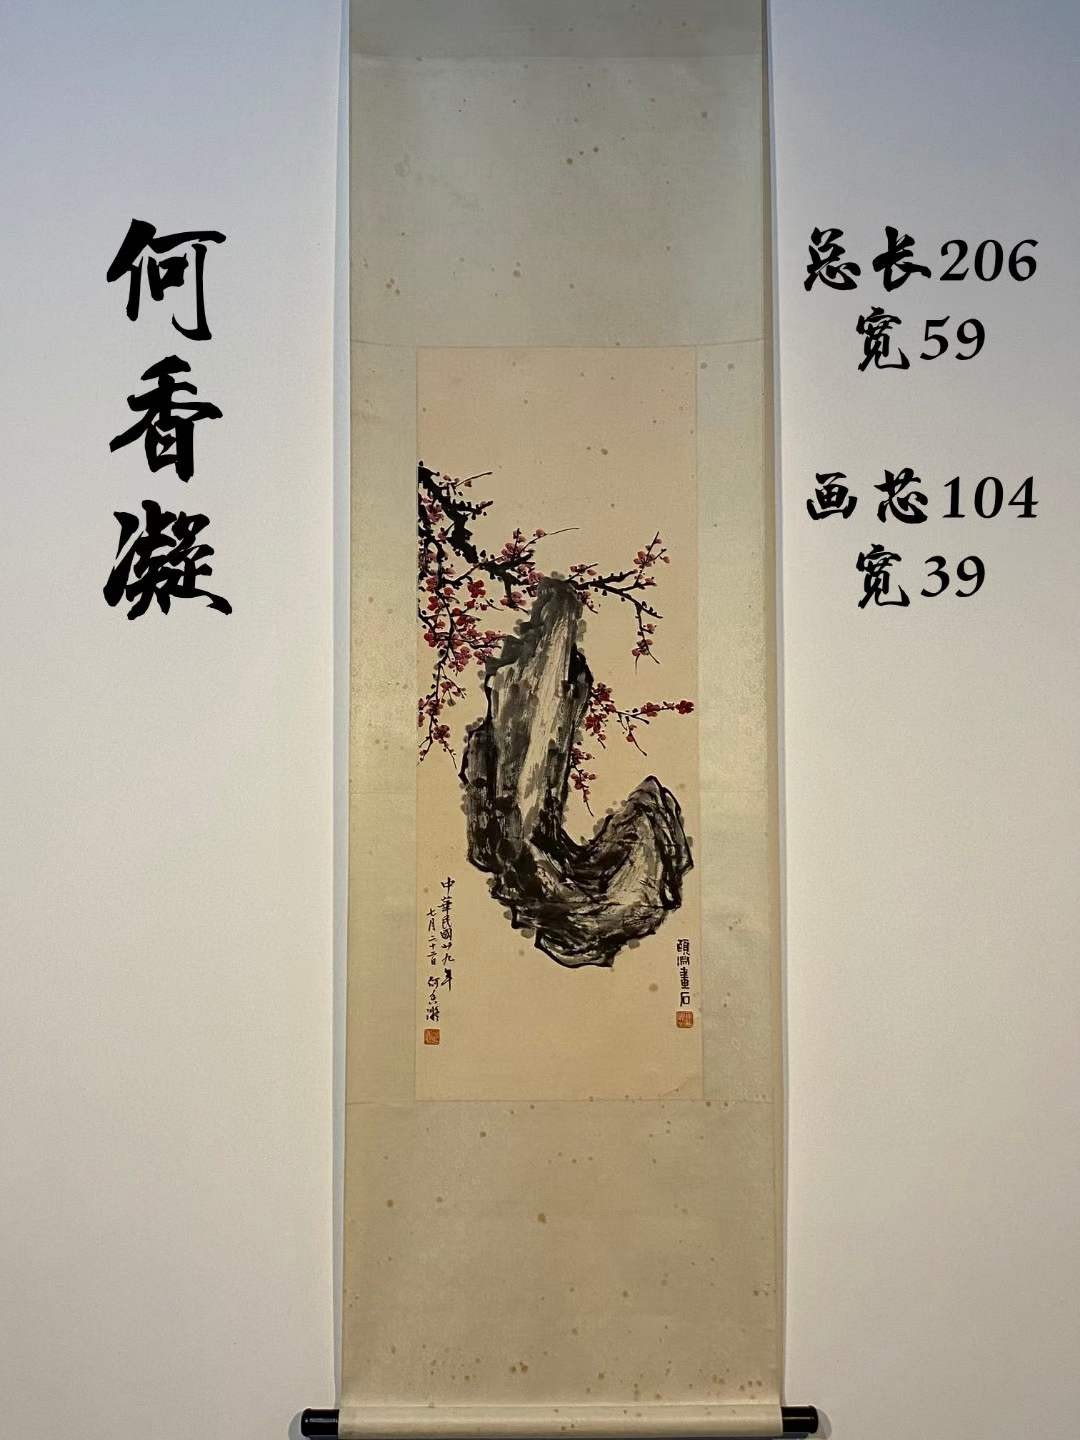 何香凝
总长206
宽59
画芯104
宽39
中華民國廿九年
七月二十二日 何香凝
頤淵畫石